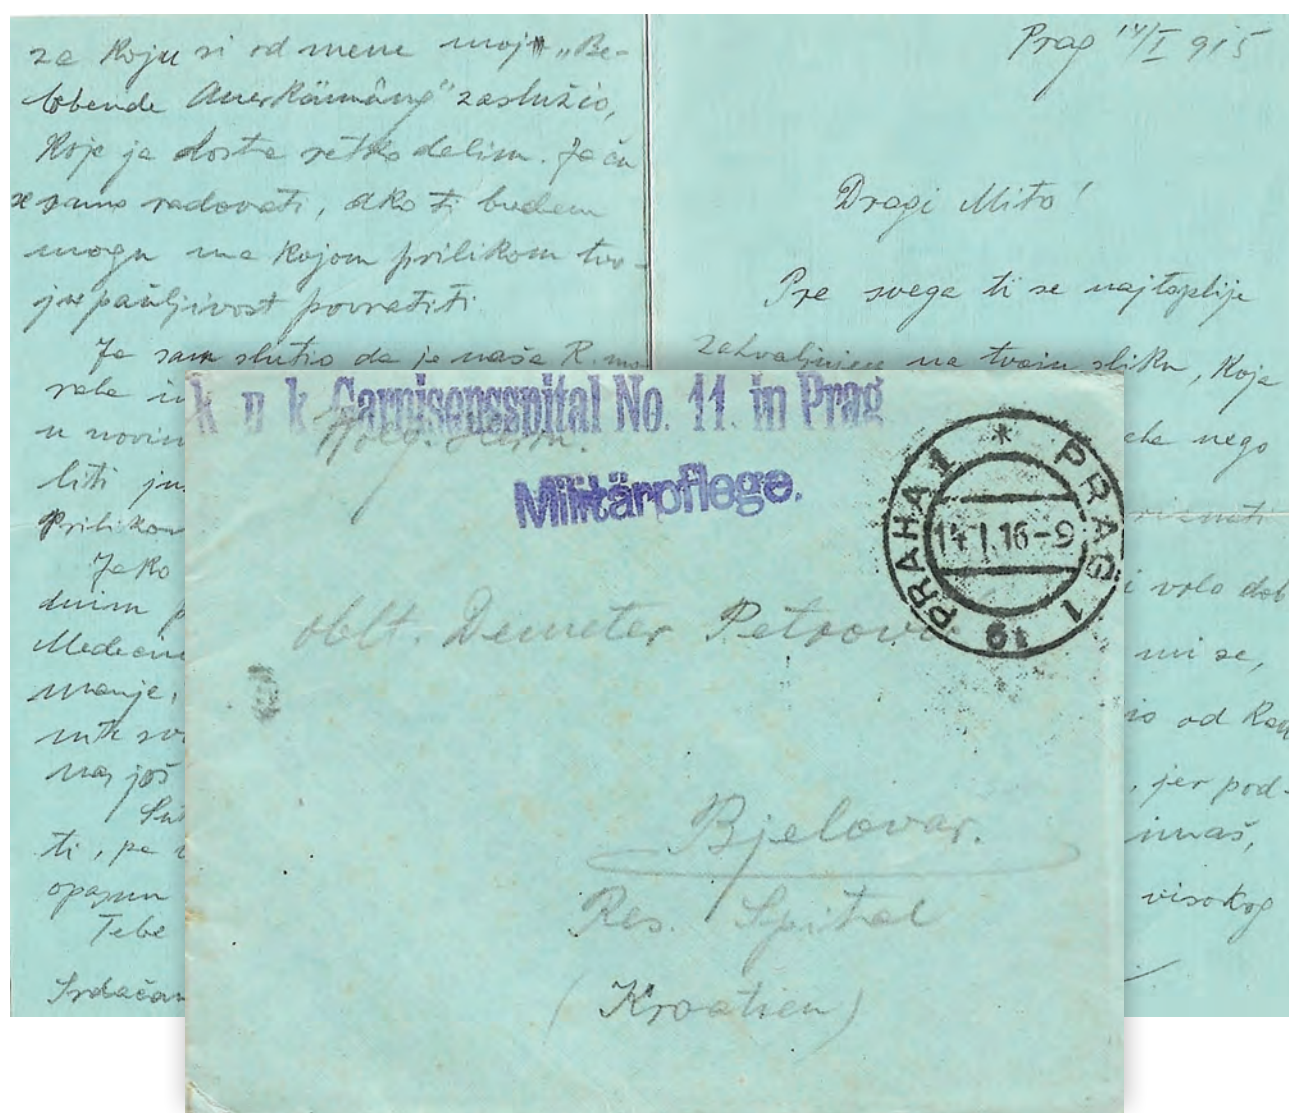 za koju si od mene moju „Be-
lobende Anerkännung" zaslužio,
koje ja dosta retko delim. Ja ću
se samo radovati, ako ti budem
mogu ma kojom prilikom tvo-
ju pažljivost povratiti.
Ja sam slutio da je naša R. mo-
rala
u novin
liti
Prilikom
Jako
dnim
manje,
naj još
ti, pa
opasun
Tebe
Srdačan
Prag 14/I 915
Dragi Mito!
Pre svega ti se najtoplije
zahvaljujem na tvoju sliku, koja
nego
priznati
i vrlo dob
mi se,
od
, jer pod-
imaš,
visokog
k u k Garnisonsspital No. 11. in Prag
Militärpflege.
PRAHA 1 * PRAG 1
14 I 16-9
19
oblt. Demeter Petrović
Bjelovar.
Res. Spital
(Kroatien)